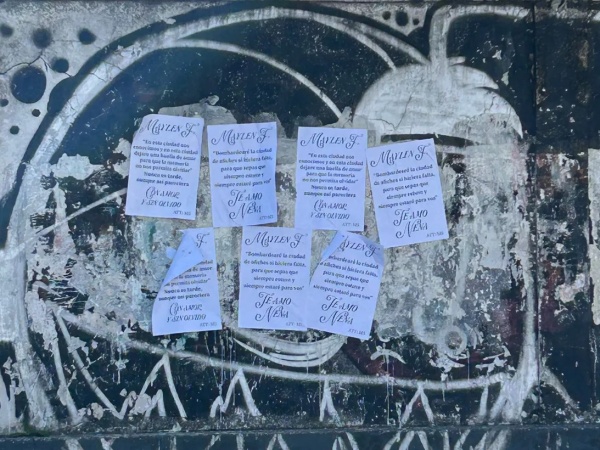 MAYLEN F.
"En esta ciudad nos
conocimos y en esta ciudad
dejaré una huella de amor
para que la memoria
no nos permita olvidar"
Nunca es tarde,
aunque así pareciera
CON AMOR
Y SIN OLVIDO
ATT: MG
MAYLEN F.
"Bombardearé la ciudad
de afiches si hiciera falta,
para que sepas que
siempre estuve y
siempre estaré para vos"
TE AMO
NENA
ATT: MG
MAYLEN F.
"En esta ciudad nos
conocimos y en esta ciudad
dejaré una huella de amor
para que la memoria
no nos permita olvidar"
Nunca es tarde,
aunque así pareciera
CON AMOR
Y SIN OLVIDO
ATT: MG
MAYLEN F.
"Bombardearé la ciudad
de afiches si hiciera falta,
para que sepas que
siempre estuve y
siempre estaré para vos"
TE AMO
NENA
ATT: MG
F.
de amor
memoria
permita olvidar"
Nunca es tarde,
aunque así pareciera
CON AMOR
Y SIN OLVIDO
ATT: MG
MAYLEN F.
"Bombardearé la ciudad
de afiches si hiciera falta,
para que sepas que
siempre estuve y
siempre estaré para vos"
TE AMO
NENA
ATT: MG
MAYLEN F.
la ciudad
de afiches si hiciera falta,
para que sepas que
siempre estuve y
siempre estaré para vos"
TE AMO
NENA
ATT: MG